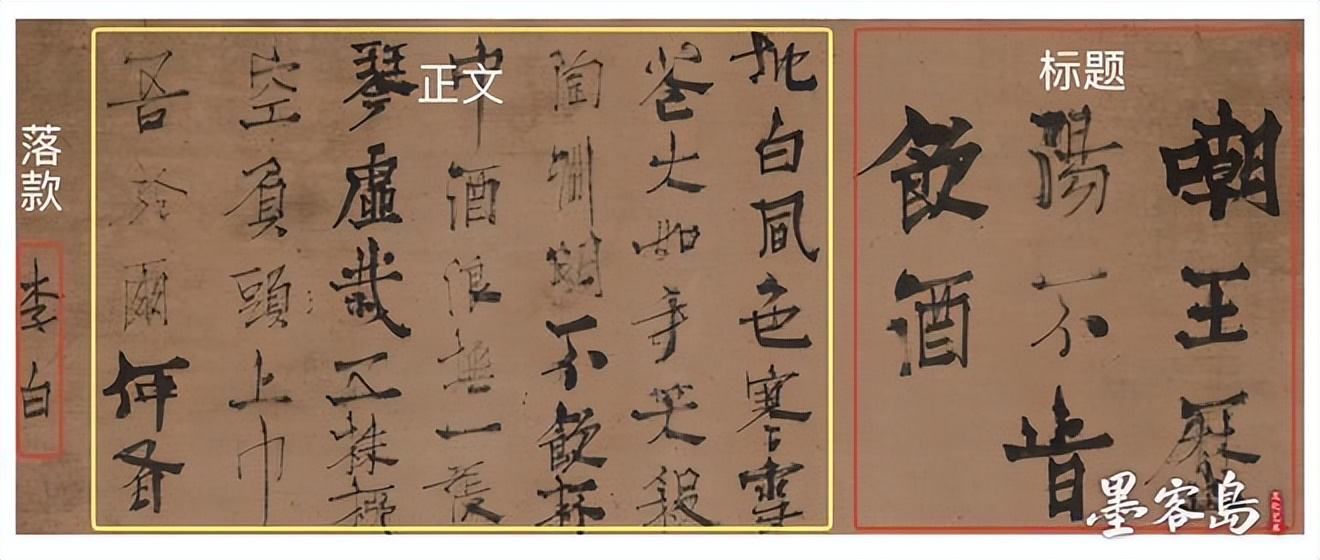 标题
嘲王歷
陽不肯
飲酒
正文
地白風色寒雪
花大如手笑殺
陶淵明不飲杯
中酒浪撫一張
琴虛栽五株柳
空負頭上巾
吾於爾何有
落款
李白
墨客岛